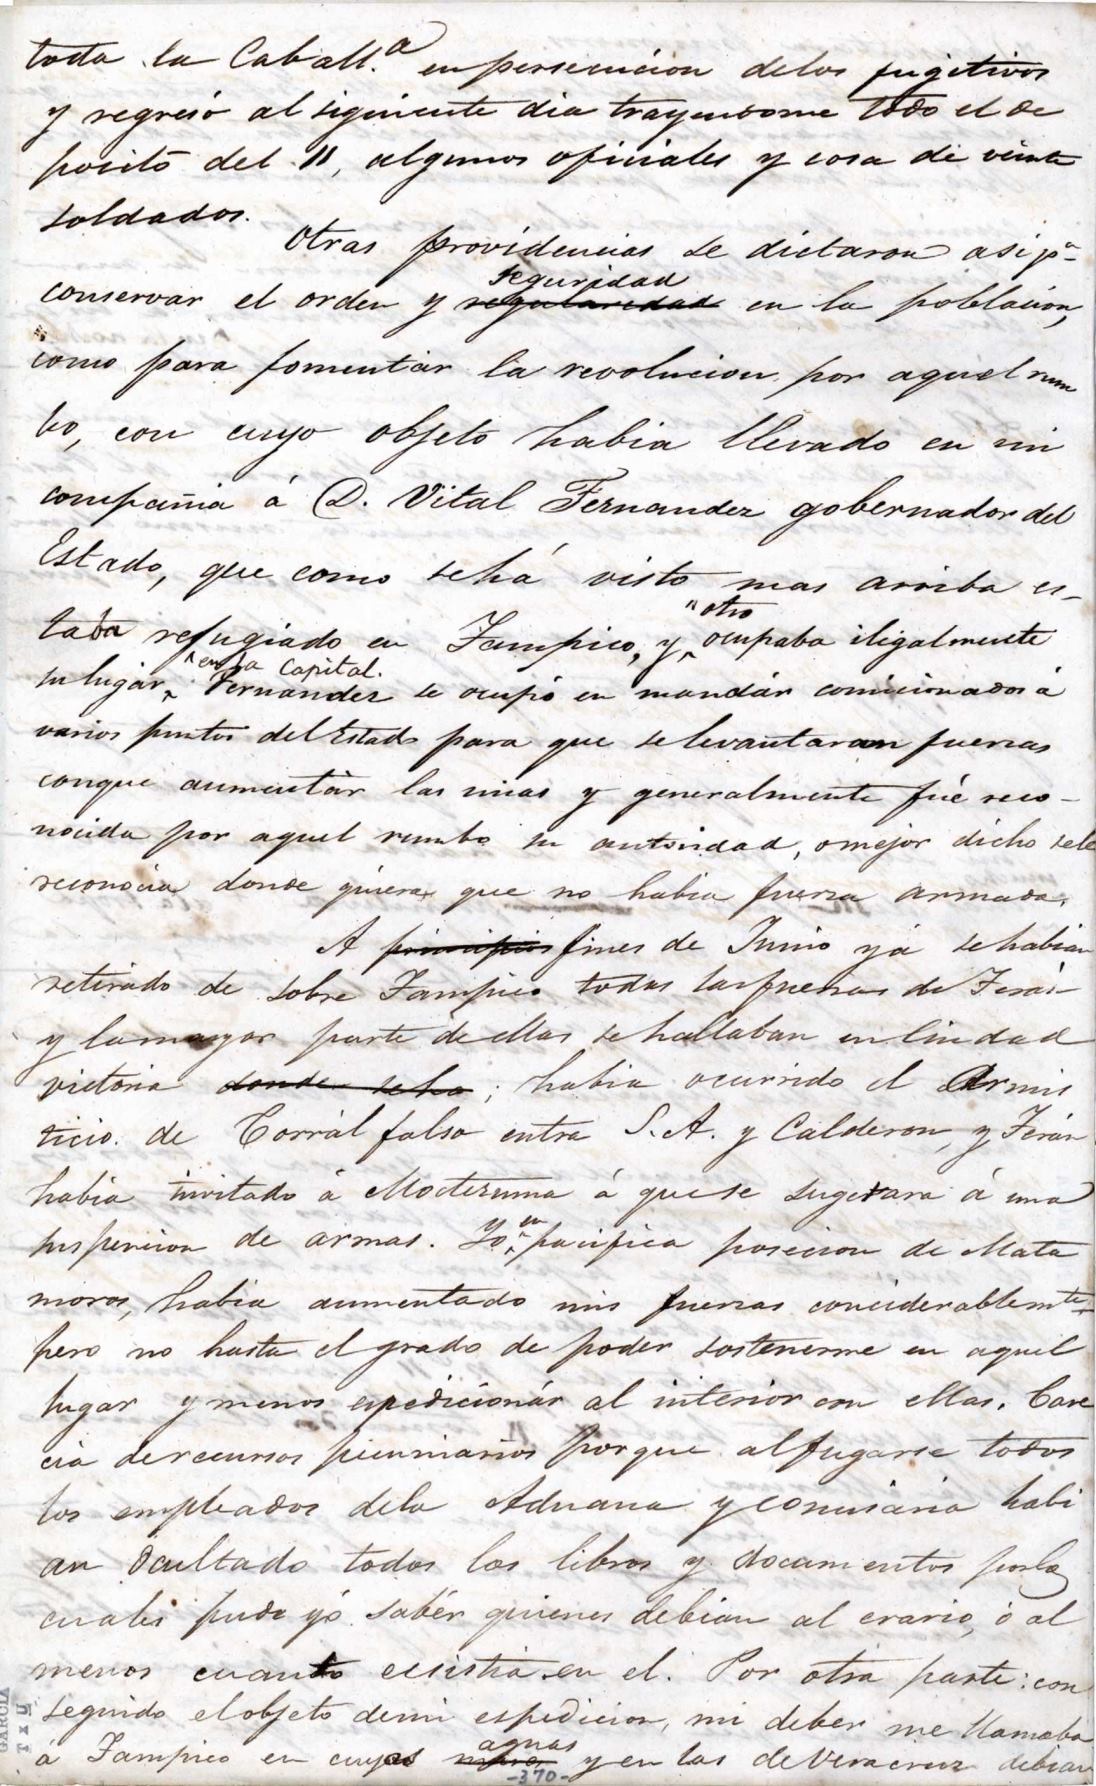 toda la Caball.ª en persecucion delos fugitivos
y regresó al siguiente dia trayendome todo el de
posito del 11, algunos oficiales y cosa de veinte
soldados.
Otras providencias se dictaron asi pª
seguridad
conservar el orden y regularidad en la poblacion,
como para fomentar la revolucion por aquel rum
bo, con cuyo objeto habia llevado en mi
compañia á D. Vital Fernandez gobernador del
Estado, que como sehá visto mas arriba es-
otro
taba refugiado en Tampico, y ocupaba ilegalmente
en la Capital.
su lugar. Fernandez se ocupó en mandár comicionados á
varios puntos del Estado para que se levantaran fuerzas
conque aumentár las mias y generalmente fué reco-
nocida por aquel rumbo su autoridad, o mejor dicho sele
reconocia donde quiera que no habia fuerza armada.
A principios fines de Junio yá se habian
retirado de sobre Tampico todas las fuerzas de Terán
y la mayor parte de ellas se hallaban en Ciudad
victoria donde se ha; habia ocurrido el Armis
ticio de Corrál falso entre S. A. y Calderon, y Terán
habia invitado á Moctezuma á que se sugetara á una
en
suspencion de armas. Yo pacifica posecion de Mata
moros, habia aumentado mis fuerzas conciderablemte
pero no hasta el grado de poder sostenerme en aquel
lugar y menos espedicionár al interior con ellas. Care
cia de recursos pecuniarios porque al fugarse todos
los empleados dela Aduana y comisaria habi
an ocultado todos los libros y documentos por los
cuales pude yó sabér quienes debian al erario, ó al
menos cuanto ecsistia en el. Por otra parte: con
seguido el objeto de mi espedicion, mi deber me llamaba
aguas
á Tampico en cuyas y en las de Veracruz debian
-370-
GARCIA